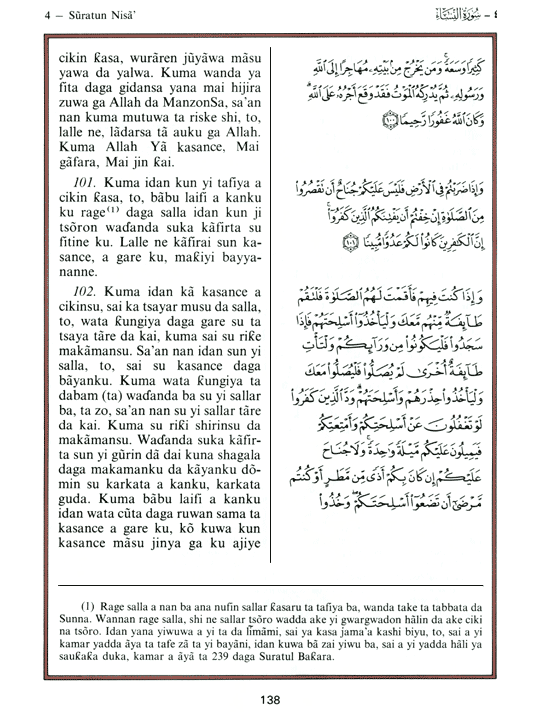 4 – Sūratun Nisā’
سُورَةُ النِّسَاءِ – ٤
cikin ƙasa, wurāren jūyāwa māsu
yawa da yalwa. Kuma wanda ya
fita daga gidansa yana mai hijira
zuwa ga Allah da ManzonSa, sa'an
nan kuma mutuwa ta riske shi, to,
lalle ne, lādarsa tā auku ga Allah.
Kuma Allah Yā kasance, Mai
gāfara, Mai jin ƙai.
101. Kuma idan kun yi tafiya a
cikin ƙasa, to, bābu laifi a kanku
ku rage(1) daga salla idan kun ji
tsōron waɗanda suka kāfirta su
fitine ku. Lalle ne kāfirai sun ka-
sance, a gare ku, maƙiyi bayya-
nanne.
102. Kuma idan kā kasance a
cikinsu, sai ka tsayar musu da salla,
to, wata ƙungiya daga gare su ta
tsaya tāre da kai, kuma sai su riƙe
makāmansu. Sa'an nan idan sun yi
salla, to, sai su kasance daga
bāyanku. Kuma wata ƙungiya ta
dabam (ta) waɗanda ba su yi sallar
ba, ta zo, sa'an nan su yi sallar tāre
da kai. Kuma su riƙi shirinsu da
makāmansu. Waɗanda suka kāfir-
ta sun yi gūrin dā dai kuna shagala
daga makamanku da kāyanku dō-
min su karkata a kanku, karkata
guda. Kuma bābu laifi a kanku
idan wata cūta daga ruwan sama ta
kasance a gare ku, kō kuwa kun
kasance māsu jinya ga ku ajiye
كَثِيرًا وَسَعَةً وَمَن يَخْرُجْ مِنۢ بَيْتِهِۦ مُهَاجِرًا إِلَى ٱللَّهِ
وَرَسُولِهِۦ ثُمَّ يُدْرِكْهُ ٱلْمَوْتُ فَقَدْ وَقَعَ أَجْرُهُۥ عَلَى ٱللَّهِ
وَكَانَ ٱللَّهُ غَفُورًا رَّحِيمًا ﴿١٠٠﴾
وَإِذَا ضَرَبْتُمْ فِى ٱلْأَرْضِ فَلَيْسَ عَلَيْكُمْ جُنَاحٌ أَن تَقْصُرُوا۟
مِنَ ٱلصَّلَوٰةِ إِنْ خِفْتُمْ أَن يَفْتِنَكُمُ ٱلَّذِينَ كَفَرُوٓا۟
إِنَّ ٱلْكَٰفِرِينَ كَانُوا۟ لَكُمْ عَدُوًّا مُّبِينًا ﴿١٠١﴾
وَإِذَا كُنتَ فِيهِمْ فَأَقَمْتَ لَهُمُ ٱلصَّلَوٰةَ فَلْتَقُمْ
طَآئِفَةٌ مِّنْهُم مَّعَكَ وَلْيَأْخُذُوٓا۟ أَسْلِحَتَهُمْ فَإِذَا
سَجَدُوا۟ فَلْيَكُونُوا۟ مِن وَرَآئِكُمْ وَلْتَأْتِ
طَآئِفَةٌ أُخْرَىٰ لَمْ يُصَلُّوا۟ فَلْيُصَلُّوا۟ مَعَكَ
وَلْيَأْخُذُوا۟ حِذْرَهُمْ وَأَسْلِحَتَهُمْ وَدَّ ٱلَّذِينَ كَفَرُوا۟
لَوْ تَغْفُلُونَ عَنْ أَسْلِحَتِكُمْ وَأَمْتِعَتِكُمْ
فَيَمِيلُونَ عَلَيْكُم مَّيْلَةً وَٰحِدَةً وَلَا جُنَاحَ
عَلَيْكُمْ إِن كَانَ بِكُمْ أَذًى مِّن مَّطَرٍ أَوْ كُنتُم
مَّرْضَىٰٓ أَن تَضَعُوٓا۟ أَسْلِحَتَكُمْ وَخُذُوا۟
(1) Rage salla a nan ba ana nufin sallar ƙasaru ta tafiya ba, wanda take ta tabbata da
Sunna. Wannan rage salla, shi ne sallar tsōro wadda ake yi gwargwadon hālin da ake ciki
na tsōro. Idan yana yiwuwa a yi ta da līmāmi, sai ya kasa jama'a kashi biyu, to, sai a yi
kamar yadda āya ta tafe zā ta yi bayāni, idan kuwa bā zai yiwu ba, sai a yi yadda hāli ya
sauƙaƙa duka, kamar a āyā ta 239 daga Suratul Baƙara.
138